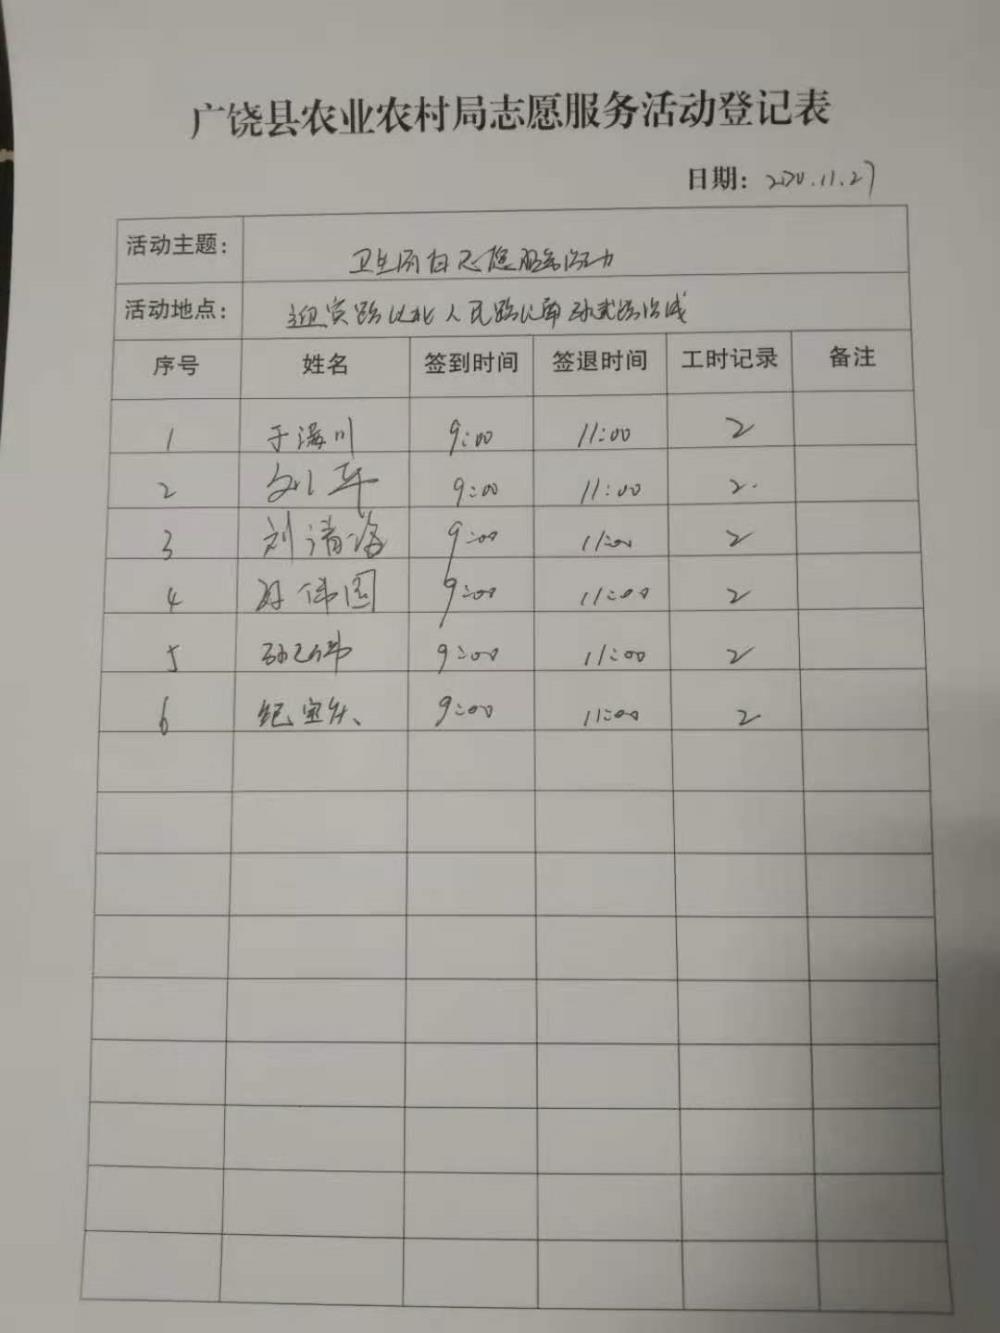 广饶县农业农村局志愿服务活动登记表
日期: 2020.11.27
活动主题: 卫生 志愿服务活动
活动地点: 迎宾路以北人民路以南孙武路沿线
序号 姓名 签到时间 签退时间 工时记录 备注
1 于海川 9:00 11:00 2
2 刘军 9:00 11:00 2.
3 刘清海 9:00 11:00 2
4 伟国 9:00 11:00 2
5 孙 伟 9:00 11:00 2
6 纪宝 9:00 11:00 2